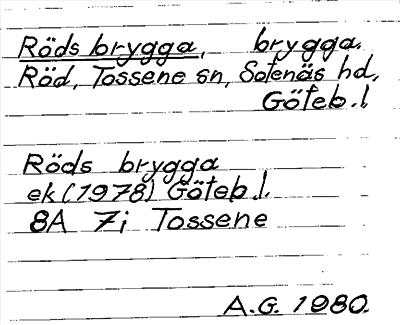 Röds brygga, brygga.
Röd, Tossene sn, Sotenäs hd,
Göteb.l
Röds brygga
ek (1978) Göteb.l.
8A 7i Tossene
A.G. 1980.